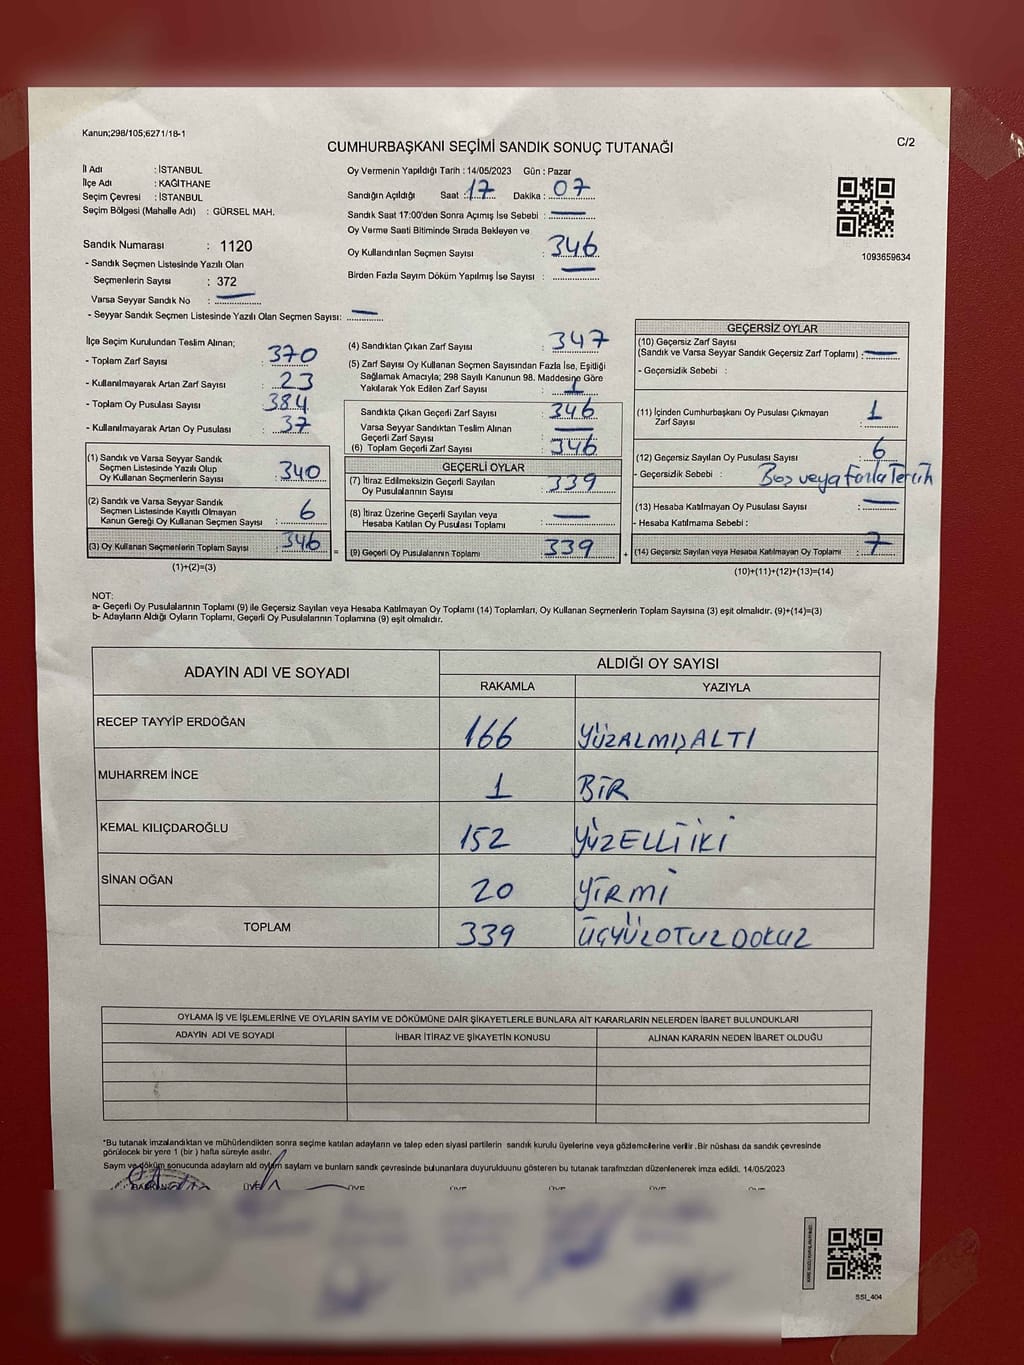 Kanun;298/105;6271/18-1
C/2
CUMHURBAŞKANI SEÇİMİ SANDIK SONUÇ TUTANAĞI
İl Adı : İSTANBUL
İlçe Adı : KAĞITHANE
Seçim Çevresi : İSTANBUL
Seçim Bölgesi (Mahalle Adı) : GÜRSEL MAH.
Sandık Numarası : 1120
- Sandık Seçmen Listesinde Yazılı Olan
Seçmenlerin Sayısı : 372
Varsa Seyyar Sandık No :
- Seyyar Sandık Seçmen Listesinde Yazılı Olan Seçmen Sayısı:
Oy Vermenin Yapıldığı Tarih : 14/05/2023 Gün : Pazar
Sandığın Açıldığı Saat : 17 Dakika : 07
Sandık Saat 17:00'den Sonra Açımış İse Sebebi :
Oy Verme Saati Bitiminde Sırada Bekleyen ve
Oy Kullandırılan Seçmen Sayısı : 346
Birden Fazla Sayım Döküm Yapılmış İse Sayısı :
1093659634
İlçe Seçim Kurulundan Teslim Alınan;
- Toplam Zarf Sayısı : 370
- Kullanılmayarak Artan Zarf Sayısı : 23
- Toplam Oy Pusulası Sayısı : 384
- Kullanılmayarak Artan Oy Pusulası : 37
(1) Sandık ve Varsa Seyyar Sandık
Seçmen Listesinde Yazılı Olup
Oy Kullanan Seçmenlerin Sayısı : 340
(2) Sandık ve Varsa Seyyar Sandık
Seçmen Listesinde Kayıtlı Olmayan
Kanun Gereği Oy Kullanan Seçmen Sayısı : 6
(3) Oy Kullanan Seçmenlerin Toplam Sayısı : 346
(1)+(2)=(3)
(4) Sandıktan Çıkan Zarf Sayısı : 347
(5) Zarf Sayısı Oy Kullanan Seçmen Sayısından Fazla İse, Eşitliği
Sağlamak Amacıyla; 298 Sayılı Kanunun 98. Maddesine Göre
Yakılarak Yok Edilen Zarf Sayısı : 1
Sandıkta Çıkan Geçerli Zarf Sayısı : 346
Varsa Seyyar Sandıktan Teslim Alınan
Geçerli Zarf Sayısı :
(6) Toplam Geçerli Zarf Sayısı : 346
GEÇERLİ OYLAR
(7) İtiraz Edilmeksizin Geçerli Sayılan
Oy Pusulalarının Sayısı : 339
(8) İtiraz Üzerine Geçerli Sayılan veya
Hesaba Katılan Oy Pusulası Toplamı :
= (9) Geçerli Oy Pusulalarının Toplamı : 339 +
GEÇERSİZ OYLAR
(10) Geçersiz Zarf Sayısı
(Sandık ve Varsa Seyyar Sandık Geçersiz Zarf Toplamı) :
- Geçersizlik Sebebi :
(11) İçinden Cumhurbaşkanı Oy Pusulası Çıkmayan
Zarf Sayısı : 1
(12) Geçersiz Sayılan Oy Pusulası Sayısı : 6
- Geçersizlik Sebebi : Boş veya Fazla Tercih
(13) Hesaba Katılmayan Oy Pusulası Sayısı :
- Hesaba Katılmama Sebebi :
(14) Geçersiz Sayılan veya Hesaba Katılmayan Oy Toplamı : 7
(10)+(11)+(12)+(13)=(14)
NOT:
a- Geçerli Oy Pusulalarının Toplamı (9) ile Geçersiz Sayılan veya Hesaba Katılmayan Oy Toplamı (14) Toplamları, Oy Kullanan Seçmenlerin Toplam Sayısına (3) eşit olmalıdır. (9)+(14)=(3)
b- Adayların Aldığı Oyların Toplamı, Geçerli Oy Pusulalarının Toplamına (9) eşit olmalıdır.
ADAYIN ADI VE SOYADI
ALDIĞI OY SAYISI
RAKAMLA YAZIYLA
RECEP TAYYİP ERDOĞAN 166 YÜZALMIŞALTI
MUHARREM İNCE 1 BİR
KEMAL KILIÇDAROĞLU 152 YÜZELLİİKİ
SİNAN OĞAN 20 YİRMİ
TOPLAM 339 ÜÇYÜZOTUZDOKUZ
OYLAMA İŞ VE İŞLEMLERİNE VE OYLARIN SAYIM VE DÖKÜMÜNE DAİR ŞİKAYETLERLE BUNLARA AİT KARARLARIN NELERDEN İBARET BULUNDUKLARI
ADAYIN ADI VE SOYADI İHBAR İTİRAZ VE ŞİKAYETİN KONUSU ALINAN KARARIN NEDEN İBARET OLDUĞU
*Bu tutanak imzalandıktan ve mühürlendikten sonra seçime katılan adayların ve talep eden siyasi partilerin sandık kurulu üyelerine veya gözlemcilerine verilir. Bir nüshası da sandık çevresinde
görülecek bir yere 1 (bir) hafta süreyle asılır.
Sayım ve döküm sonucunda adayların ald oyların sayılarn ve bunların sandık çevresinde bulunanlara duyurulduunu gösteren bu tutanak tarafımzdan düzenlenerek imza edildi. 14/05/2023
BAŞKAN ÜYE ÜYE ÜYE ÜYE ÜYE ÜYE
SSI_404